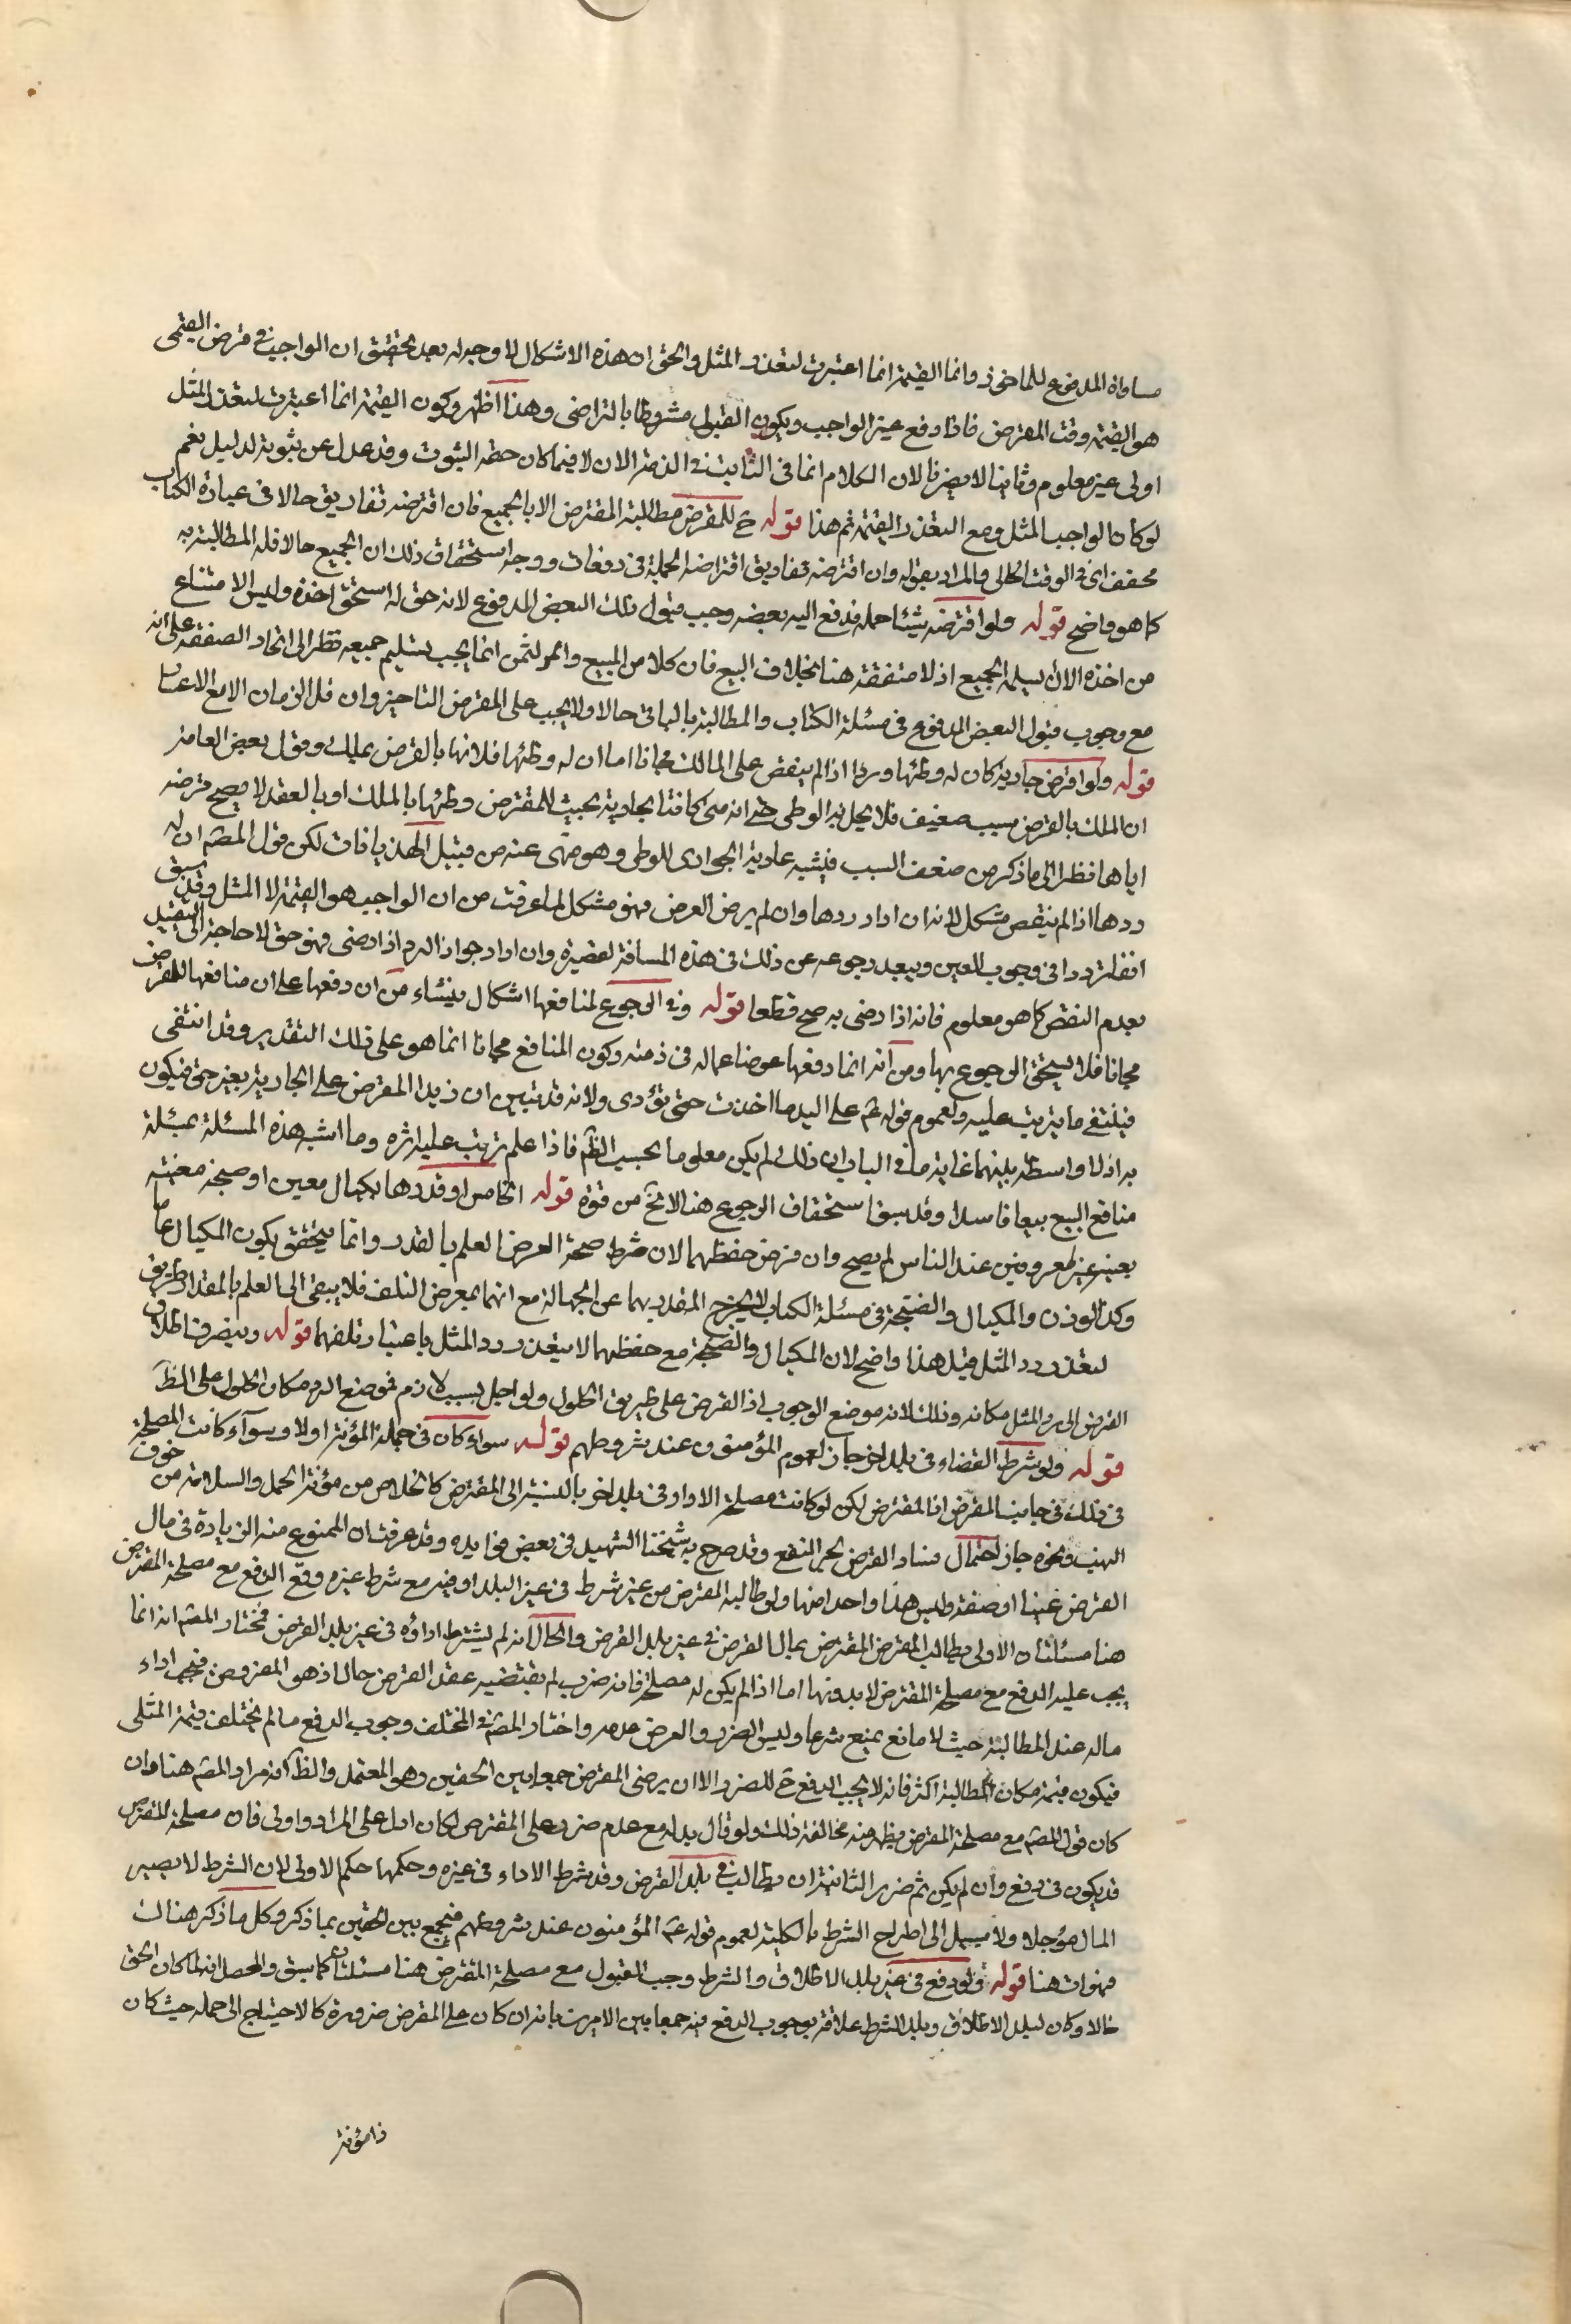 مساواة المدفوع للماخوذ وانما القيمة انما اعتبرت لتعذر المثل والحق ان هذه الاشكال لا وجه له بعد تحقيق ان الواجب في قرض القيمي
هو القيمة وقت القرض فاذا دفع عين الواجب ويكون القبول مشروطا بالتراضي وهذا اظهر وكون القيمة انما اعتبرت لتعذر المثل
اولى غير معلوم وثانيا لا يضرنا لان الكلام انما في الثابت في الذمة الان لا فيما كان حقه الثبوت وقد عدل عن ثبوته لدليل نعم
لو كان الواجب المثل ومع التعذر القيمة تم هذا قوله ح للمقرض مطالبة المقترض الا بالجميع فان اقترضه تفاريق حالا في عبارة الكتاب
مخفف اي في الوقت الحالي والمراد بقوله وان اقترضه تفاريق اقتراضه الجملة في دفعات ووجه استحقاق ذلك ان الجميع حالا فله المطالبة به
كما هو واضح قوله ولو اقترضه شيئا جملة فدفع اليه بعضه وجب قبول ذلك البعض المدفوع لانه حق له استحق اخذه وليس الامتناع
من اخذه الا ان يسلمه الجميع اذ لا صفقة هنا بخلاف البيع فان كلا من المبيع والثمن انما يجب تسليم جميعه نظرا الى اتحاد الصفقة على انه
مع وجوب قبول البعض المدفوع في مسئلة الكتاب والمطالبة بالباقي حالا ولا يجب على المقرض التاخير وان قل الزمان الا مع الاعسار
قوله ولو اقترض جارية كان له وطئها وردها اذا لم ينقص على المالك مجانا اما ان له وطئها فلانها بالقرض يملك وقول بعض العامة
ان الملك بالقرض سبب ضعيف فلا يحل به الوطى حتى انه متى كانت الجارية بحيث للمقترض وطئها بالملك او بالعقد لا يصح قرضه
اياها نظرا الى ما ذكر من ضعف السبب فيشبه عارية الجواري للوطى وهو منهى عنه من قبيل الهذيانات لكن قول المص ان له
ردها اذا لم ينقص مشكل لانه ان اراد ردها وان لم يرض المقرض فهو مشكل لما عرفت من ان الواجب هو القيمة لا المثل وقد سبق
ان له ترددا في وجوب العين ويبعد رجوعه عن ذلك في هذه المسافة القصيرة وان اراد جواز الرد اذا رضى فهو حق لا حاجة الى التقييد
بعدم النقص كما هو معلوم فانه اذا رضى به صح قطعا قوله وفي الرجوع لمنافعها اشكال ينشاء من ان دفعها على ان منافعها للمقترض
مجانا فلا يستحق الرجوع بها ومن انه انما دفعها عوضا عما له في ذمته وكون المنافع مجانا انما هو على ذلك التقدير وقد انتفى
فينتفي ما يترتب عليه ولعموم قوله ع على اليد ما اخذت حتى تؤدى ولانه قد تبين ان يد المقرض على الجارية بغير حق فيكون
يد اذ لا واسطة بينهما غاية ما في الباب ان ذلك لم يكن معلوما بحسب الظ فاذا علم ترتب عليه اثره وما اشبه هذه المسئلة بمسئلة
منافع المبيع بيعا فاسدا وقد سبق استحقاق الرجوع هنا لا يخ من قوة قوله الخامس لو قدرها بمكيال معين او صنجة معينة
غير معروفين عند الناس لم يصح وان فرض حفظهما لان شرط صحة القرض العلم بالقدر وانما يتحقق بكون المكيال عاما
وكذا الوزن والمكيال والصنجة في مسئلة الكتاب لا يخرج المقدر بهما عن الجهالة مع انهما بمعرض التلف فلا يبقى الى العلم بالمقدار طريق
لتعذر رد المثل قيل هذا واضح لان المكيال والصنجة مع حفظهما لا يتعذر رد المثل باعتبار تلفهما قوله وينصرف اطلاق
القرض الى رد المثل مكانه وذلك لانه موضع الوجوب اذ القرض على طريق الحلول ولو اجل بسبب لازم فموضع الرد مكان الحلول على الظ
قوله ولو شرط القضاء في بلد اخر جاز لعموم المؤمنون عند شروطهم قوله سواء كان في حمله المؤنة اولا وسواء كانت المصلحة
في ذلك في جانب المقرض او المقترض لكن لو كانت مصلحة الاداء في بلد اخر بالنسبة الى المقترض كالخلاص من مؤنة الحمل والسلامة من خوف
النهب ونحوه جاز احتمال فساد القرض لجر النفع وقد صرح به شيخنا الشهيد في بعض فوايده وقد عرفت ان الممنوع منه الزيادة في مال
القرض عينا او صفة وليس هذا واحدا منها ولو طالبه المقرض من غير شرط في غير البلد او فيه مع شرط غيره وقع الدفع مع مصلحة المقترض
هنا مسئلتان الاولى يطالب المقرض المقترض بمال القرض في غير بلد القرض والحال انه لم يشترط اداؤه في غير بلد القرض فمختار المص انه انما
يجب عليه الدفع مع مصلحة المقترض لا بدونها اما اذا لم يكن له مصلحة فانه ضرب لم يقتضيه عقد القرض حالا اذ هو المفروض فيجب اداء
ماله عند المطالبة حيث لا مانع يمنع شرعا وليس الضرر والفرض عدمه واختار المص في المختلف وجوب الدفع ما لم يختلف قيمة المثلى
فيكون قيمته مكان المطالبة اكثر فانه لا يجب الدفع ح للضرر الا ان يرضى المقرض جمعا بين الحقين وهو المعتمد والظ انه مراد المص هنا وان
كان قول المص مع مصلحة المقترض يظهر منه مخالفة ذلك ولو قال بدله مع عدم ضرر على المقترض لكان ادل على المراد واولى فان مصلحة المقترض
قد يكون في دفع وان لم يكن ثم ضرر الثانية ان يطالب في بلد القرض وقد شرط الاداء في غيره وحكمها حكم الاولى لان الشرط لا يصير
المال مؤجلا ولا سبيل الى اطراح الشرط بالكلية لعموم قوله ع المؤمنون عند شروطهم فيجمع بين الحقين بما ذكر وكل ما ذكر هناك
فهو ات هنا قوله ولو دفع في غير بلد الاطلاق والشرط وجب القبول مع مصلحة المقرض هنا مسئلتان كما سبق والمحصل انه لما كان الحق
حالا وكان لبلد الاطلاق وبلد الشرط علاقة بوجوب الدفع فيه جمعا بين الامرين بانه ان كان على المقرض ضرورة كالاحتياج الى حمله حيث كان
ذا مؤنة